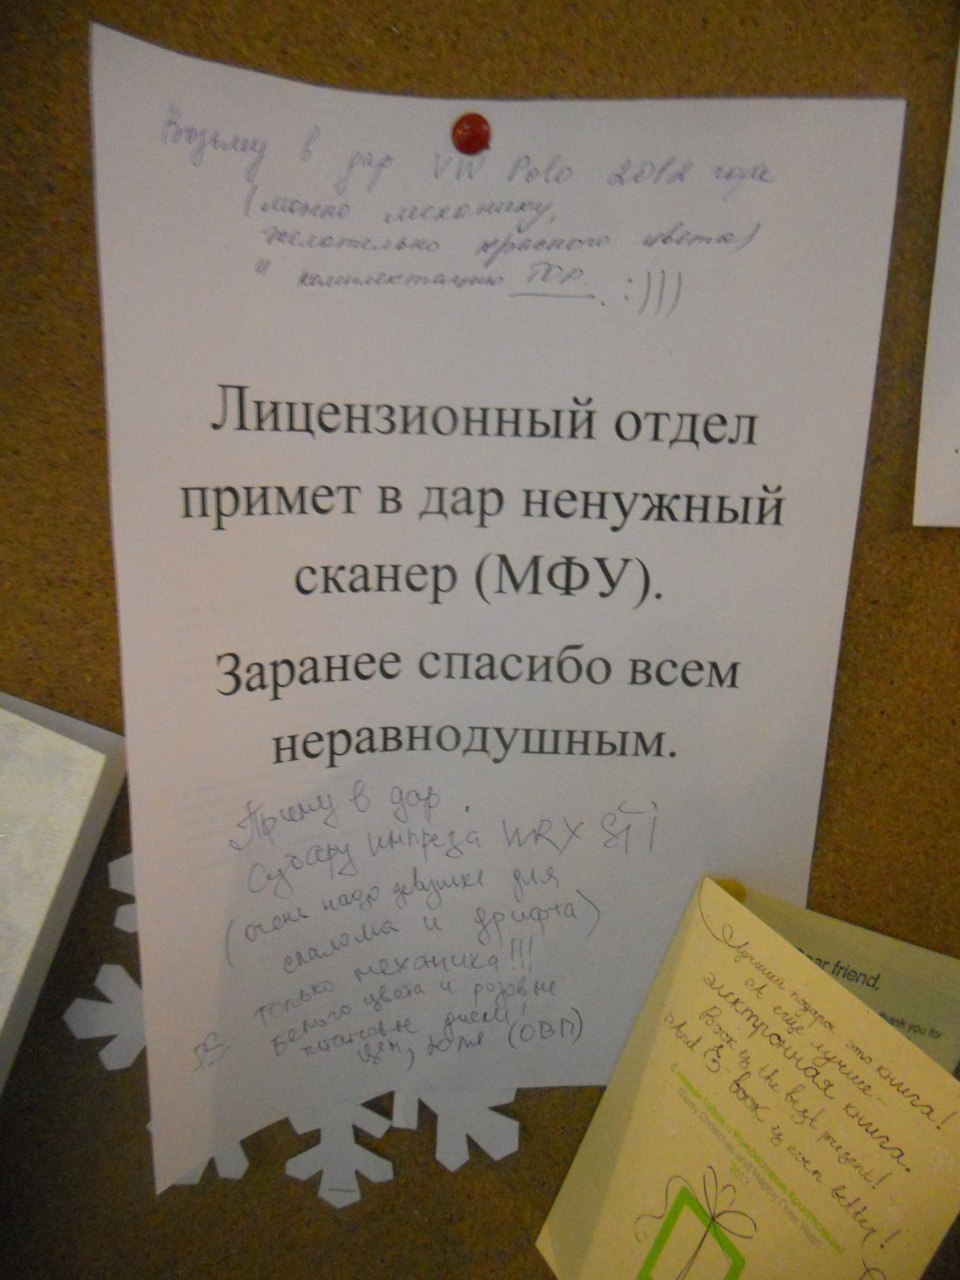 Возьму в дар VW Polo 2012 года
(можно механику,
желательно красного цвета)
и комплектацию Top. :)))
Лицензионный отдел
примет в дар ненужный
сканер (МФУ).
Заранее спасибо всем
неравнодушным.
Приму в дар
Субару импреза WRX STI
(очень надо девушке для
слалома и дрифта)
только механика!!!
PS белого цвета и розовые
литые диски!
(ОВП)
Dear friend,
thank you for
Лучший подарок это книга!
А ещё лучше -
электронная книга.
Book is the best present!
And E-book is even better!
С Новым Годом и Рождеством Христовым!
Merry Christmas and Happy New Year!
2013